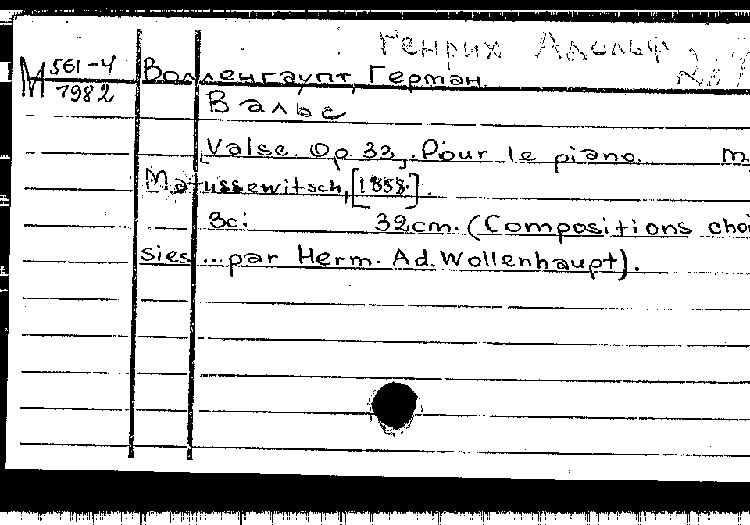 Генрих Адольф
М 561-4 Волленгаупт, Герман.
1982
Вальс
Valse Op 33, Pour le piano. M,
Matussewitsch, [1858].
9c: 32cm. (Compositions choi
sies ... par Herm. Ad. Wollenhaupt).